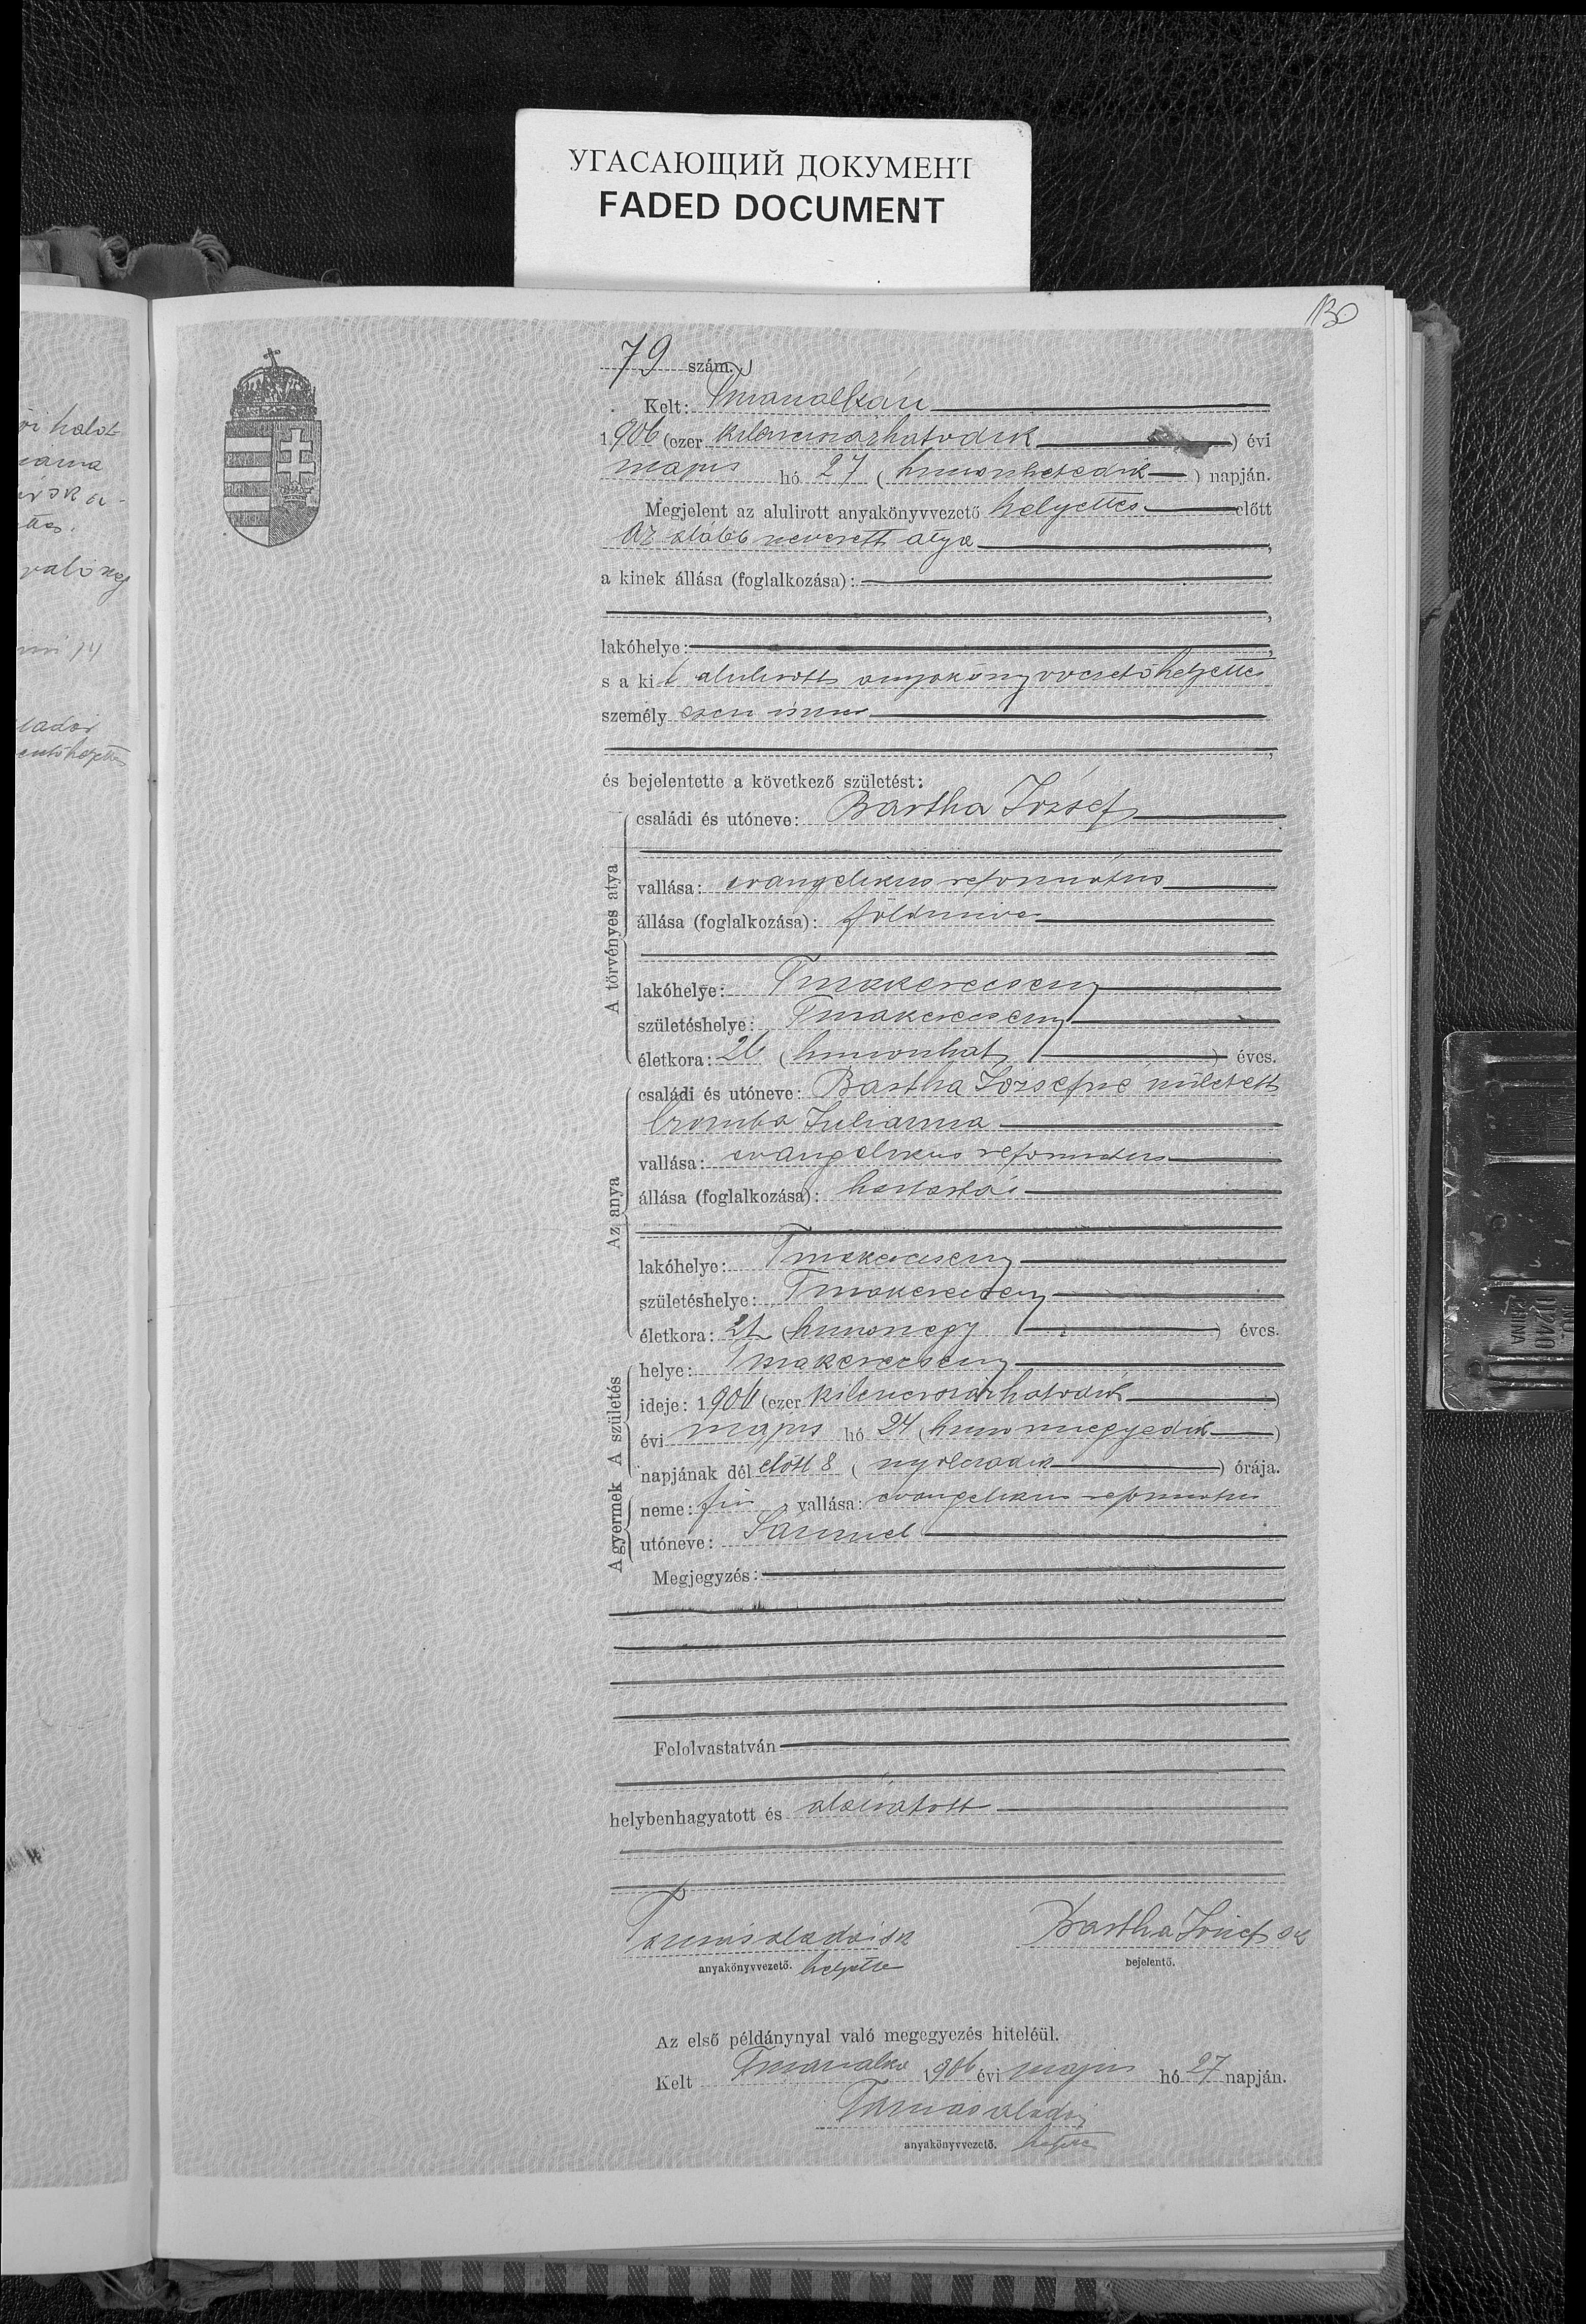 УГАСАЮЩИЙ ДОКУМЕНТ
FADED DOCUMENT
130
79 szám.
Kelt:
1906 (ezer kilenczszázhatodik) évi
május hó 27 (huszonhetedik) napján.
Megjelent az alulirott anyakönyvvezető helyettes előtt
Az alább nevezett atya,
a kinek állása (foglalkozása):
lakóhelye:
s a kit alulirott anyakönyvvezetőhelyettes
személyesen ismer
és bejelentette a következő születést:
A törvényes atya
családi és utóneve: Bartha József
vallása: evangelikus református
állása (foglalkozása): földmives
lakóhelye: Tiszakerecseny
születéshelye: Tiszakerecseny
életkora: 26 (huszonhat) éves.
Az anya
családi és utóneve: Bartha Józsefné született
Czomba Julianna
vallása: evangelikus reformatus
állása (foglalkozása): háztartás
lakóhelye: Tiszakerecseny
születéshelye: Tiszakerecseny
életkora: 21 (huszonegy) éves.
A gyermek A születés
helye: Tiszakerecseny
ideje: 1906 (ezer kilenczszázhatodik)
évi május hó 24 (huszonnegyedik)
napjának dél előtt 8 (nyolczadik) órája.
neme: fiu, vallása: evangelikus reformatus
utóneve: Sámuel
Megjegyzés:
Felolvastatván
helybenhagyatott és aláiratott
anyakönyvvezető. helyettes
Bartha József sk
bejelentő.
Az első példánynyal való megegyezés hiteléül.
Kelt 1906 évi május hó 27 napján.
anyakönyvvezető. helyettes